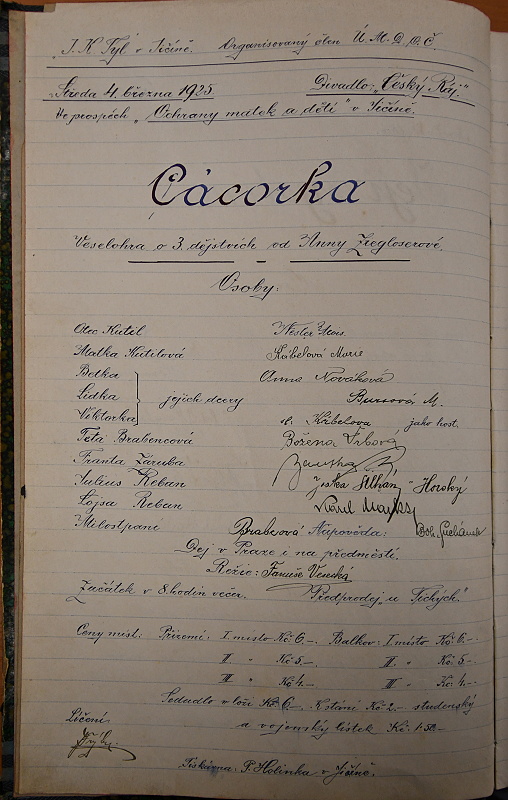 "J. K. Tyl v Jičíně. Organisovaný člen Ú. M. D. O. Č.
Středa 4 března 1925. Divadlo: "Český Ráj."
Ve prospěch "Ochrany matek a dětí" v Jičíně.
Cácorka
Veselohra o 3. dějstvích od Anny Ziegloserové.
Osoby:
Otec Kutil
Matka Kutilová Kábelová Marie
Betka Anna Nováková
Lidka jejich dcery Bursová M.
Viktorka sl. Kábelova jako host.
Teta Brabencová Božena Vrbová
Franta Záruba
Julius Reban Horský
Lojsa Reban Karel
Milostpaní Brabcová Nápověda:
Dej v Praze i na předměstí.
Režie: Fanuše Venecká
Začátek v 8. hodin večer. Předprodej "u Tichých"
Ceny míst: Přízemí: I. místo Kč 6.- Balkon: I. místo Kč. 6.-
II. " Kč 5.- II. " Kč. 5.-
III " Kč 4.- III " Kč. 4.-
Sedadlo v loži Kč 6.- K stání Kč 2.- studenský
a vojenský lístek Kč. 1.50-
Líčení
Tiskárna: F. Holinka v Jičíně.